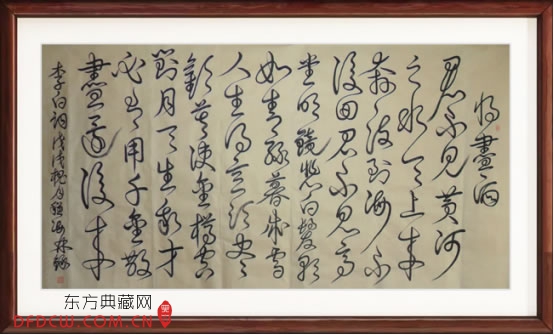 将盡酒
君不见黄河
之水天上来
奔流到海不
復回君不见高
堂明鏡悲白髮朝
如青絲暮成雪
人生得意须尽
歡莫使金樽空
對月天生我才
必有用千金散
盡還復来
李白詞 戊戌桃月
东方典藏网
DFDCW.COM.CN